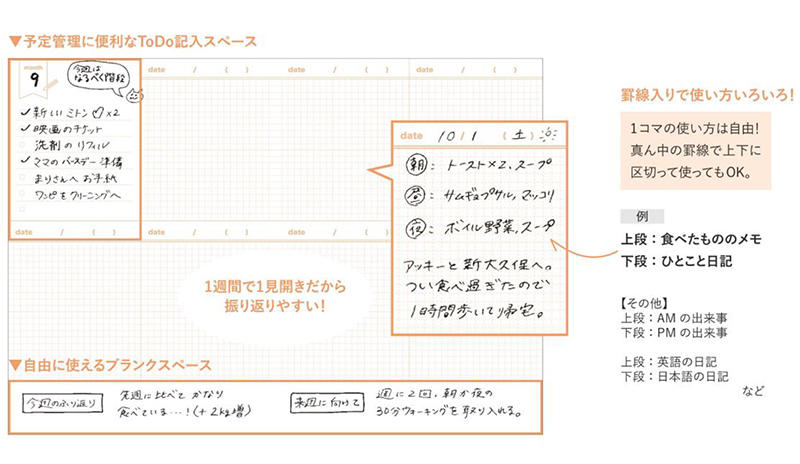 ▼予定管理に便利なToDo記入スペース
month
9
今週は
なるべく階段
✓新しいミトン♡×2
✓映画のチケット
洗剤のリフィル
✓ママのバースデー準備
まりさんへ お手紙
ワンピをクリーニングへ
date / ( )
date / ( )
date / ( )
date 10/1 (土)
朝:トースト×2、スープ
昼:サムギョプサル、マッコリ
夜:ボイル野菜、スープ
アッキーと新大久保へ。
つい食べ過ぎたので
1時間歩いて帰宅。
date / ( )
date / ( )
date / ( )
1週間で1見開きだから
振り返りやすい!
▼自由に使えるブランクスペース
今週のふり返り
先週に比べて かなり
食べている…!(+2kg増)
来週に向けて
週に2回、朝か夜の
30分ウォーキングを取り入れる。
罫線入りで使い方いろいろ!
1コマの使い方は自由!
真ん中の罫線で上下に
区切って使ってもOK。
例
上段:食べたもののメモ
下段:ひとこと日記
【その他】
上段:AM の出来事
下段:PM の出来事
上段:英語の日記
下段:日本語の日記
など